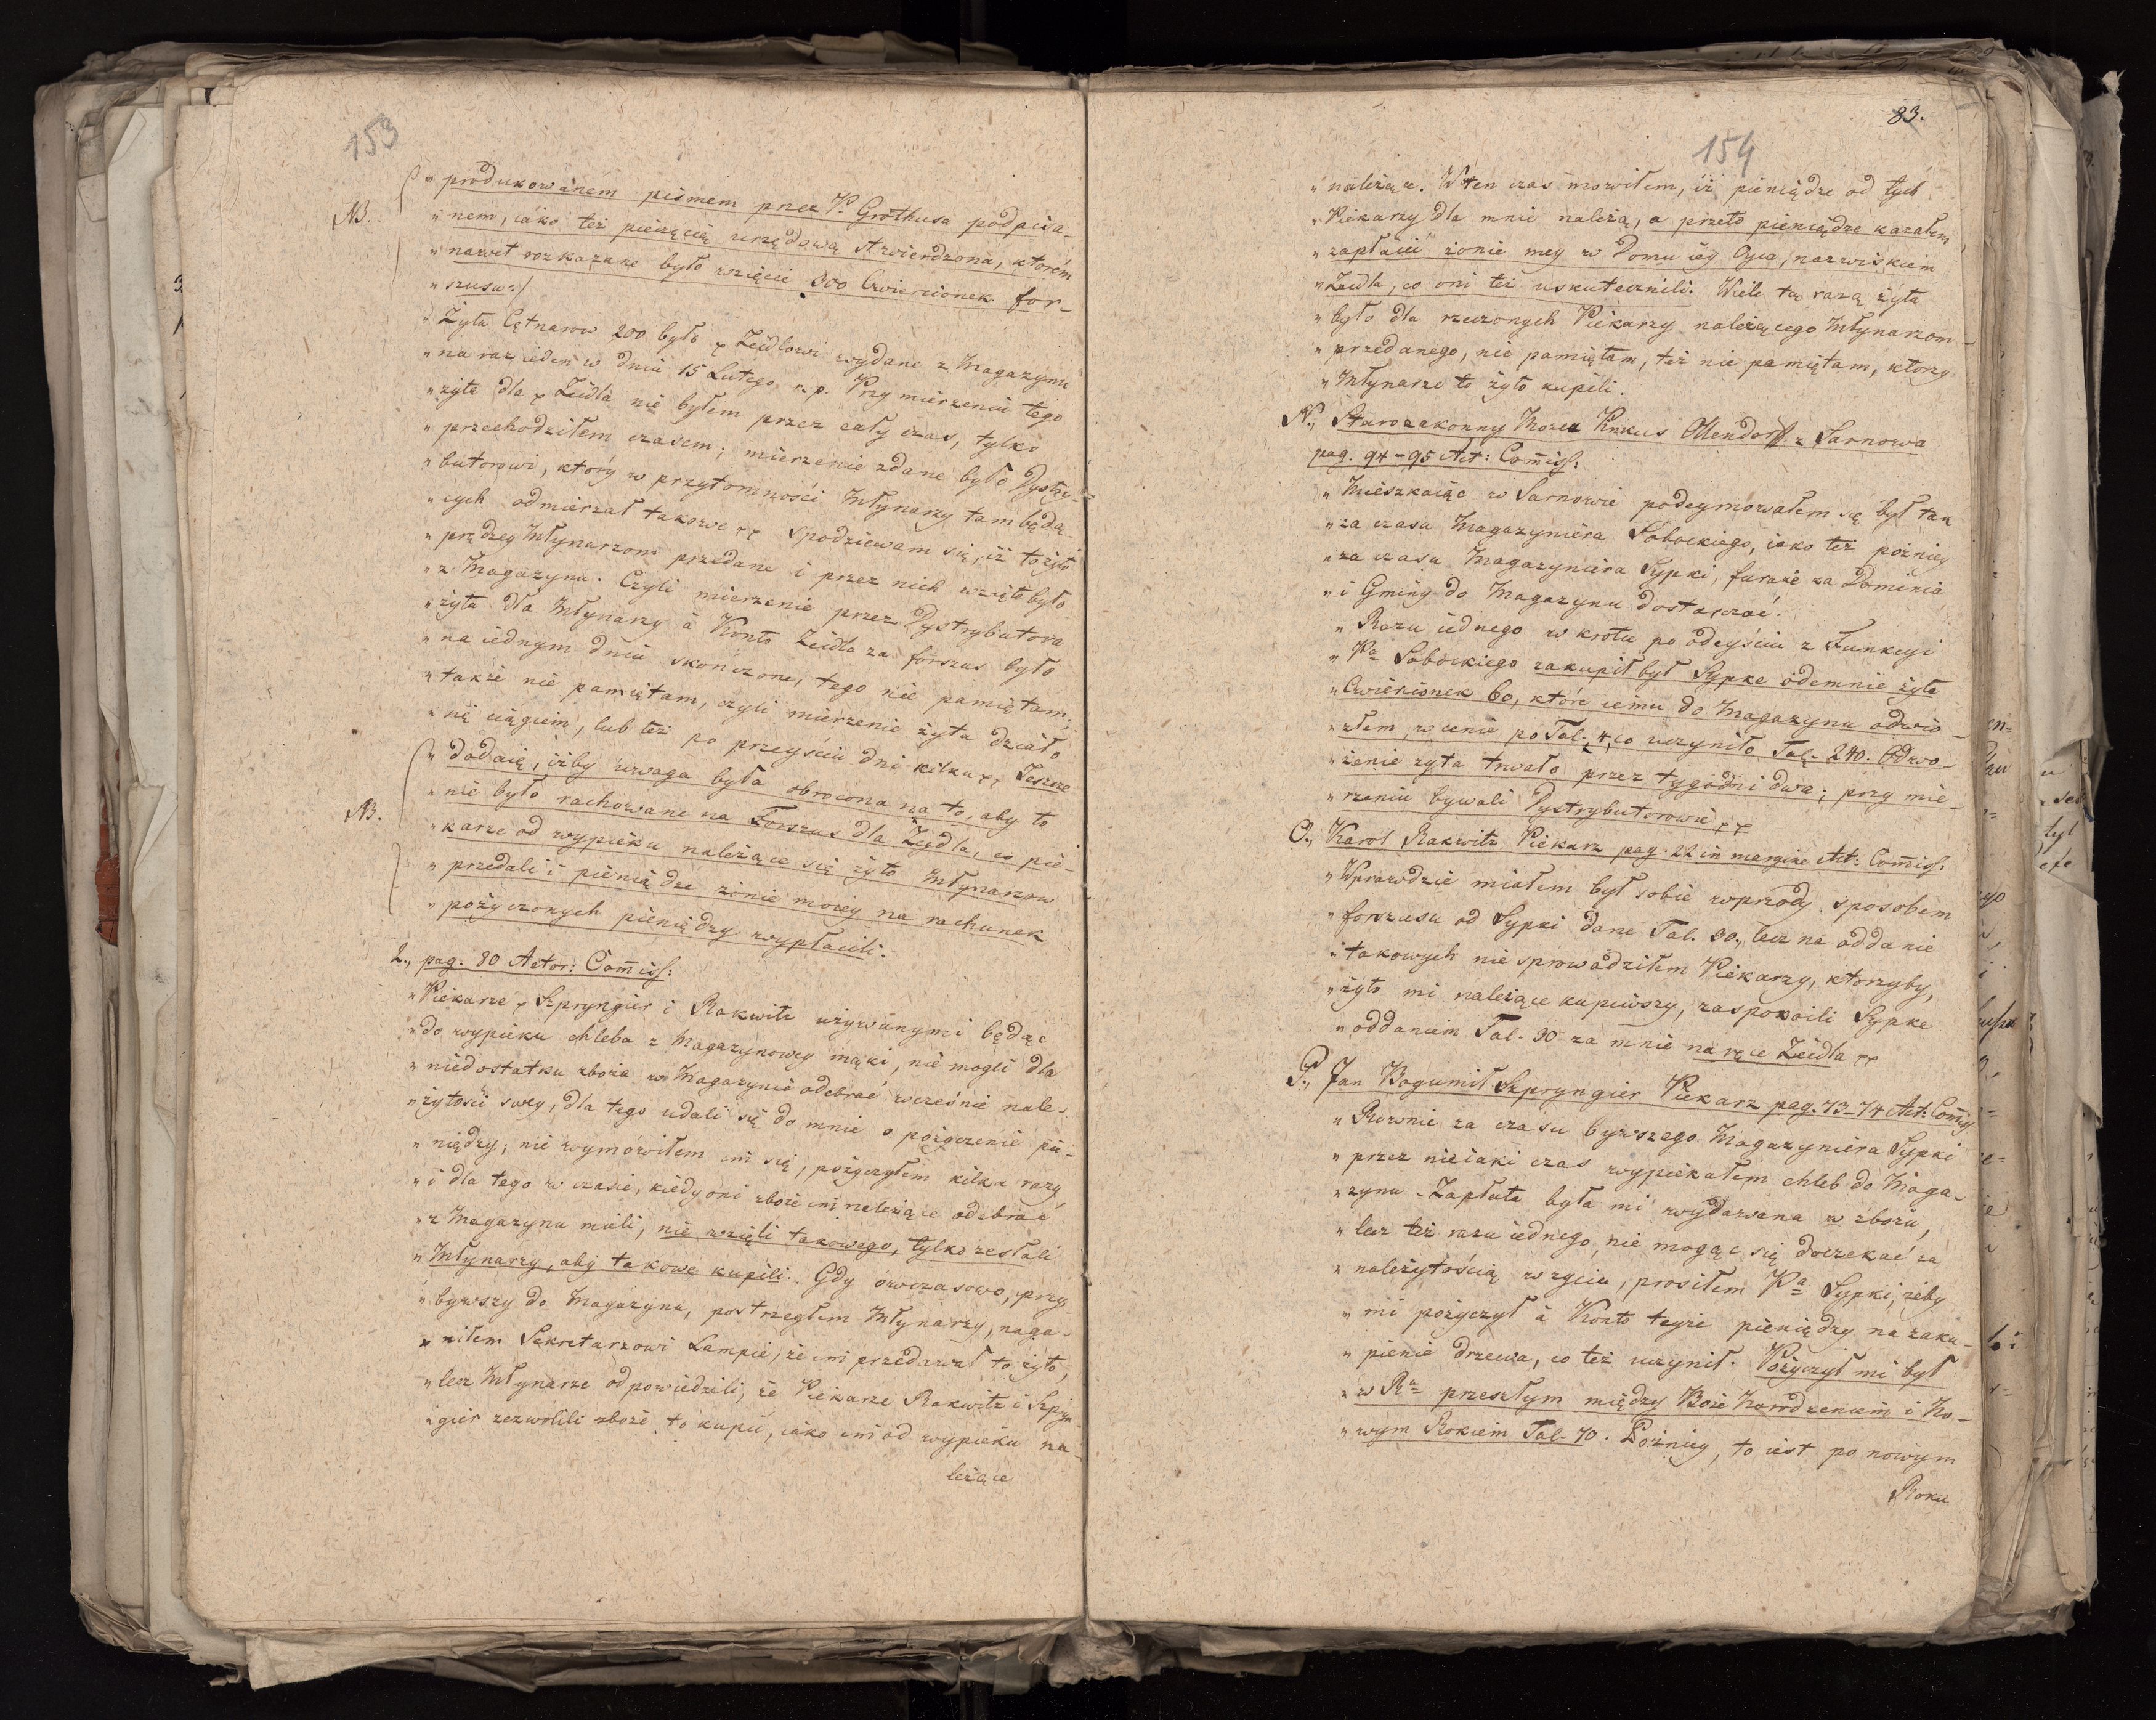 153
„ produkowanem pismem przez P. Grothusa podpisa-
NB.
„ nem, iako też pieczęcią urzędową stwierdzoną, ktorém
„ nawet rozkazane było wzięcie 300 Cwiercionek for-
„ szusu:/
„ Żyta Cętnarow 200 było p Zeidlowi wydane z Magazynu
„ na raz ieden w dniu 15 Lutego r. p. Przy mierzeniu tego
„ żyta dla p Zeidla nie byłem przez cały czas, tylko
„ przechodziłem czasem; mierzenie zdane było Dystry-
„ butorowi, który w przytomności Młynarzy tam będą-
„ cych odmierzał takowe pp Spodziewam się, iż to żyto
„ prędzey Młynarzom przedane i przez nich wzięte było
„ z Magazynu. Czyli mierzenie przez Dystrybutora
„ żyta dla Młynarzy à Konto Zeidla za forszus było
„ na iednym dniu skończone, tego nie pamiętam;
„ także nie pamiętam, czyli mierzenie żyta działo
„ się ciągiem, lub też po przeyściu dni kilku pp Jeszcze
„ dodaię, iżby uwaga była obrocona na to, aby to
NB.
„ nie było rachowane na Forszus dla Zeydla, co pie-
„ karze od wypieku należące się żyto Młynarzow
„ przedali i pieniądze żonie moiey na rachunek
„ pożyczonych pieniędzy wypłacili.
2., pag. 80 Actor: Com̄iss:
„ Piekarze p Szpryngier i Rakwitz używanymi będąc
„ do wypieku chleba z Magazynowey mąki, nie mogli dla
„ niedostatku zboża w Magazynie odebrać wcześnie nale-
„ żytości swey, dla tego udali się do mnie o pożyczenie pie-
„ niędzy; nie wymówiłem im się, pożyczyłem kilka razy
„ i dla tego w czasie, kiedy oni zboże im należące odebrać
„ z Magazynu mieli, nie wzięli takowego, tylko zesłali
„ Młynarzy, aby takowe kupili. Gdy owczasowo, przy-
„ bywszy do Magazynu, postrzegłem Młynarzy, naga-
„ niłem Sekretarzowi Lampie, że im przedawał to żyto,
„ lecz Młynarze odpowiedzieli, że Piekarze Rakwitz i Szpryn-
„ gier zezwolili zboże to kupić, iako im od wypieku na-
leżące
83.
154
„ należące. Wten czas mowiłem, iż pieniądze od tych
„ Piekarzy dla mnie należą, a przeto pieniądze kazałem
„ zapłacić żonie mey w Domu iey Oyca, nazwiskiem
„ Zeidla, co oni też uskutecznili. Wiele tą razą żyta
„ było dla rzeczonych Piekarzy należącego Młynarzom
„ przedanego, nie pamiętam, też nie pamiętam, ktorzy
„ Młynarze to żyto kupili.
N., Starozakonny Mozes Pinkus Ollendorff z Sarnowa
pag. 94-95 Act: Com̄iss:
„ Mieszkaiąc w Sarnowie podeymowałem się był tak
„ za czasu Magazyniera Sobockiego, iako też pozniey
„ za czasu Magazyniera Sypki, furaże za Dominia
„ i Gminy do Magazynu dostarczać.
„ Razu iednego wkrotce po odeyściu z Funkcyi
„ Pa Sobockiego zakupił był Sypke odemnie żyta
„ Cwiercionek 60, które iemu do Magazynu odwio-
„ złem, w cenie po Tal. 4, co uczyniło Tal. 240. Odwo-
„ żenie żyta trwało przez tygodni dwa; przy mie-
„ rzeniu bywali Dystrybutorowie pp
O., Karol Rakwitz Piekarz pag. 22 in margine Act: Com̄iss:
„ Wprawdzie miałem był sobie wprzody sposobem
„ forszusu od Sypki dane Tal. 30., lecz na oddanie
„ takowych nie sprowadziłem Piekarzy, ktorzyby,
„ żyto mi należące kupiwszy, zaspokoili Sypke
„ oddaniem Tal. 30 za mnie na ręce Zeidla pp
P., Jan Bogumił Szpryngier Piekarz pag. 73-74 Act: Com̄iss
„ Rownie za czasu bywszego Magazyniera Sypki
„ przez nieiaki czas wypiekałem chleb do Maga-
„ zynu. Zapłata była mi wydawana w zbożu,
„ lecz też razu iednego, nie mogąc się doczekać za
„ należytością w życiu, prosiłem Pa Sypki, żeby
„ mi pożyczył à Konto teyże pieniędzy na zaku-
„ pienie drzewa, co też uczynił. Pożyczył mi był
„ w Rn przeszłym między Boże Narodzeniem i No-
„ wym Rokiem Tal. 70. Pozniey, to iest po nowym
Roku